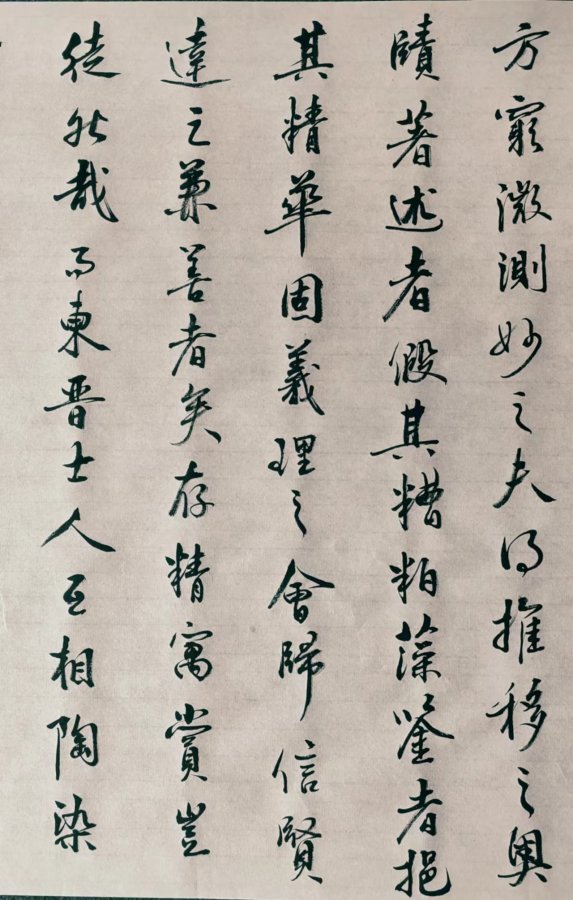 方窮微測妙之夫得推移之奧
賾著述者假其糟粕藻鑒者挹
其精華固義理之會歸信賢
達之兼善者矣存精寓賞豈
徒然哉而東晋士人互相陶染